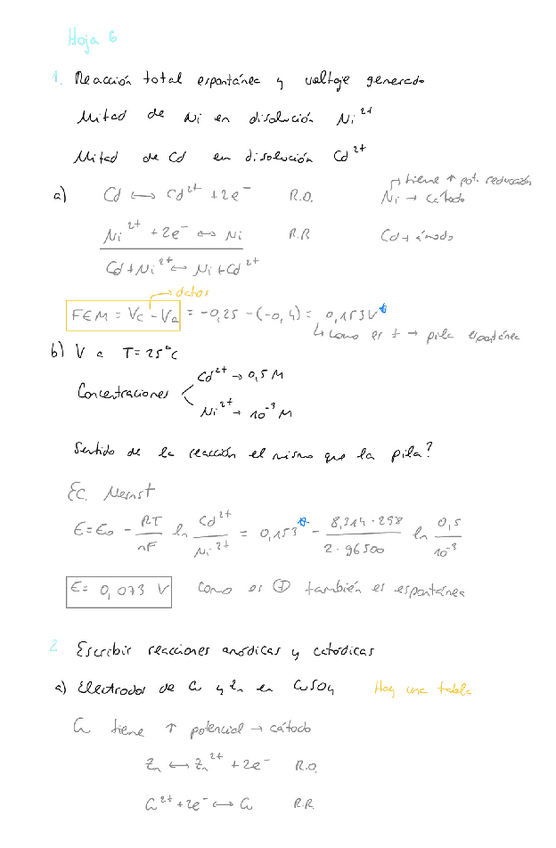 Hoja 6
1. Reacción total espontánea y voltaje generado
Mitad de Ni en disolución Ni²⁺
Mitad de Cd en disolución Cd²⁺
a) Cd ⟷ Cd²⁺ + 2e⁻ R.O. Ni → cátodo
↳ tiene ↑ pot. reducción
Ni²⁺ + 2e⁻ ⟷ Ni R.R Cd → ánodo
Cd + Ni²⁺ ⟷ Ni + Cd²⁺
→ datos
FEM = Vc - Va = -0,25 - (-0,4) = 0,153V*
↳ como es + → pila espontánea
b) V a T = 25°C
Concentraciones
Cd²⁺ → 0,5 M
Ni²⁺ → 10⁻³ M
Sentido de la reacción el mismo que la pila?
Ec. Nernst
E = E₀ - RT/nF ln Cd²⁺/Ni²⁺ = 0,153* - 8,314·298/2·96500 ln 0,5/10⁻³
E = 0,073 V Como es ⊕ también es espontánea
2. Escribir reacciones anódicas y catódicas
a) Electrodos de Cu y Zn en CuSO₄ Hay una tabla
Cu tiene ↑ potencial → cátodo
Zn ⟷ Zn²⁺ + 2e⁻ R.O.
Cu²⁺ + 2e⁻ ⟷ Cu R.R.